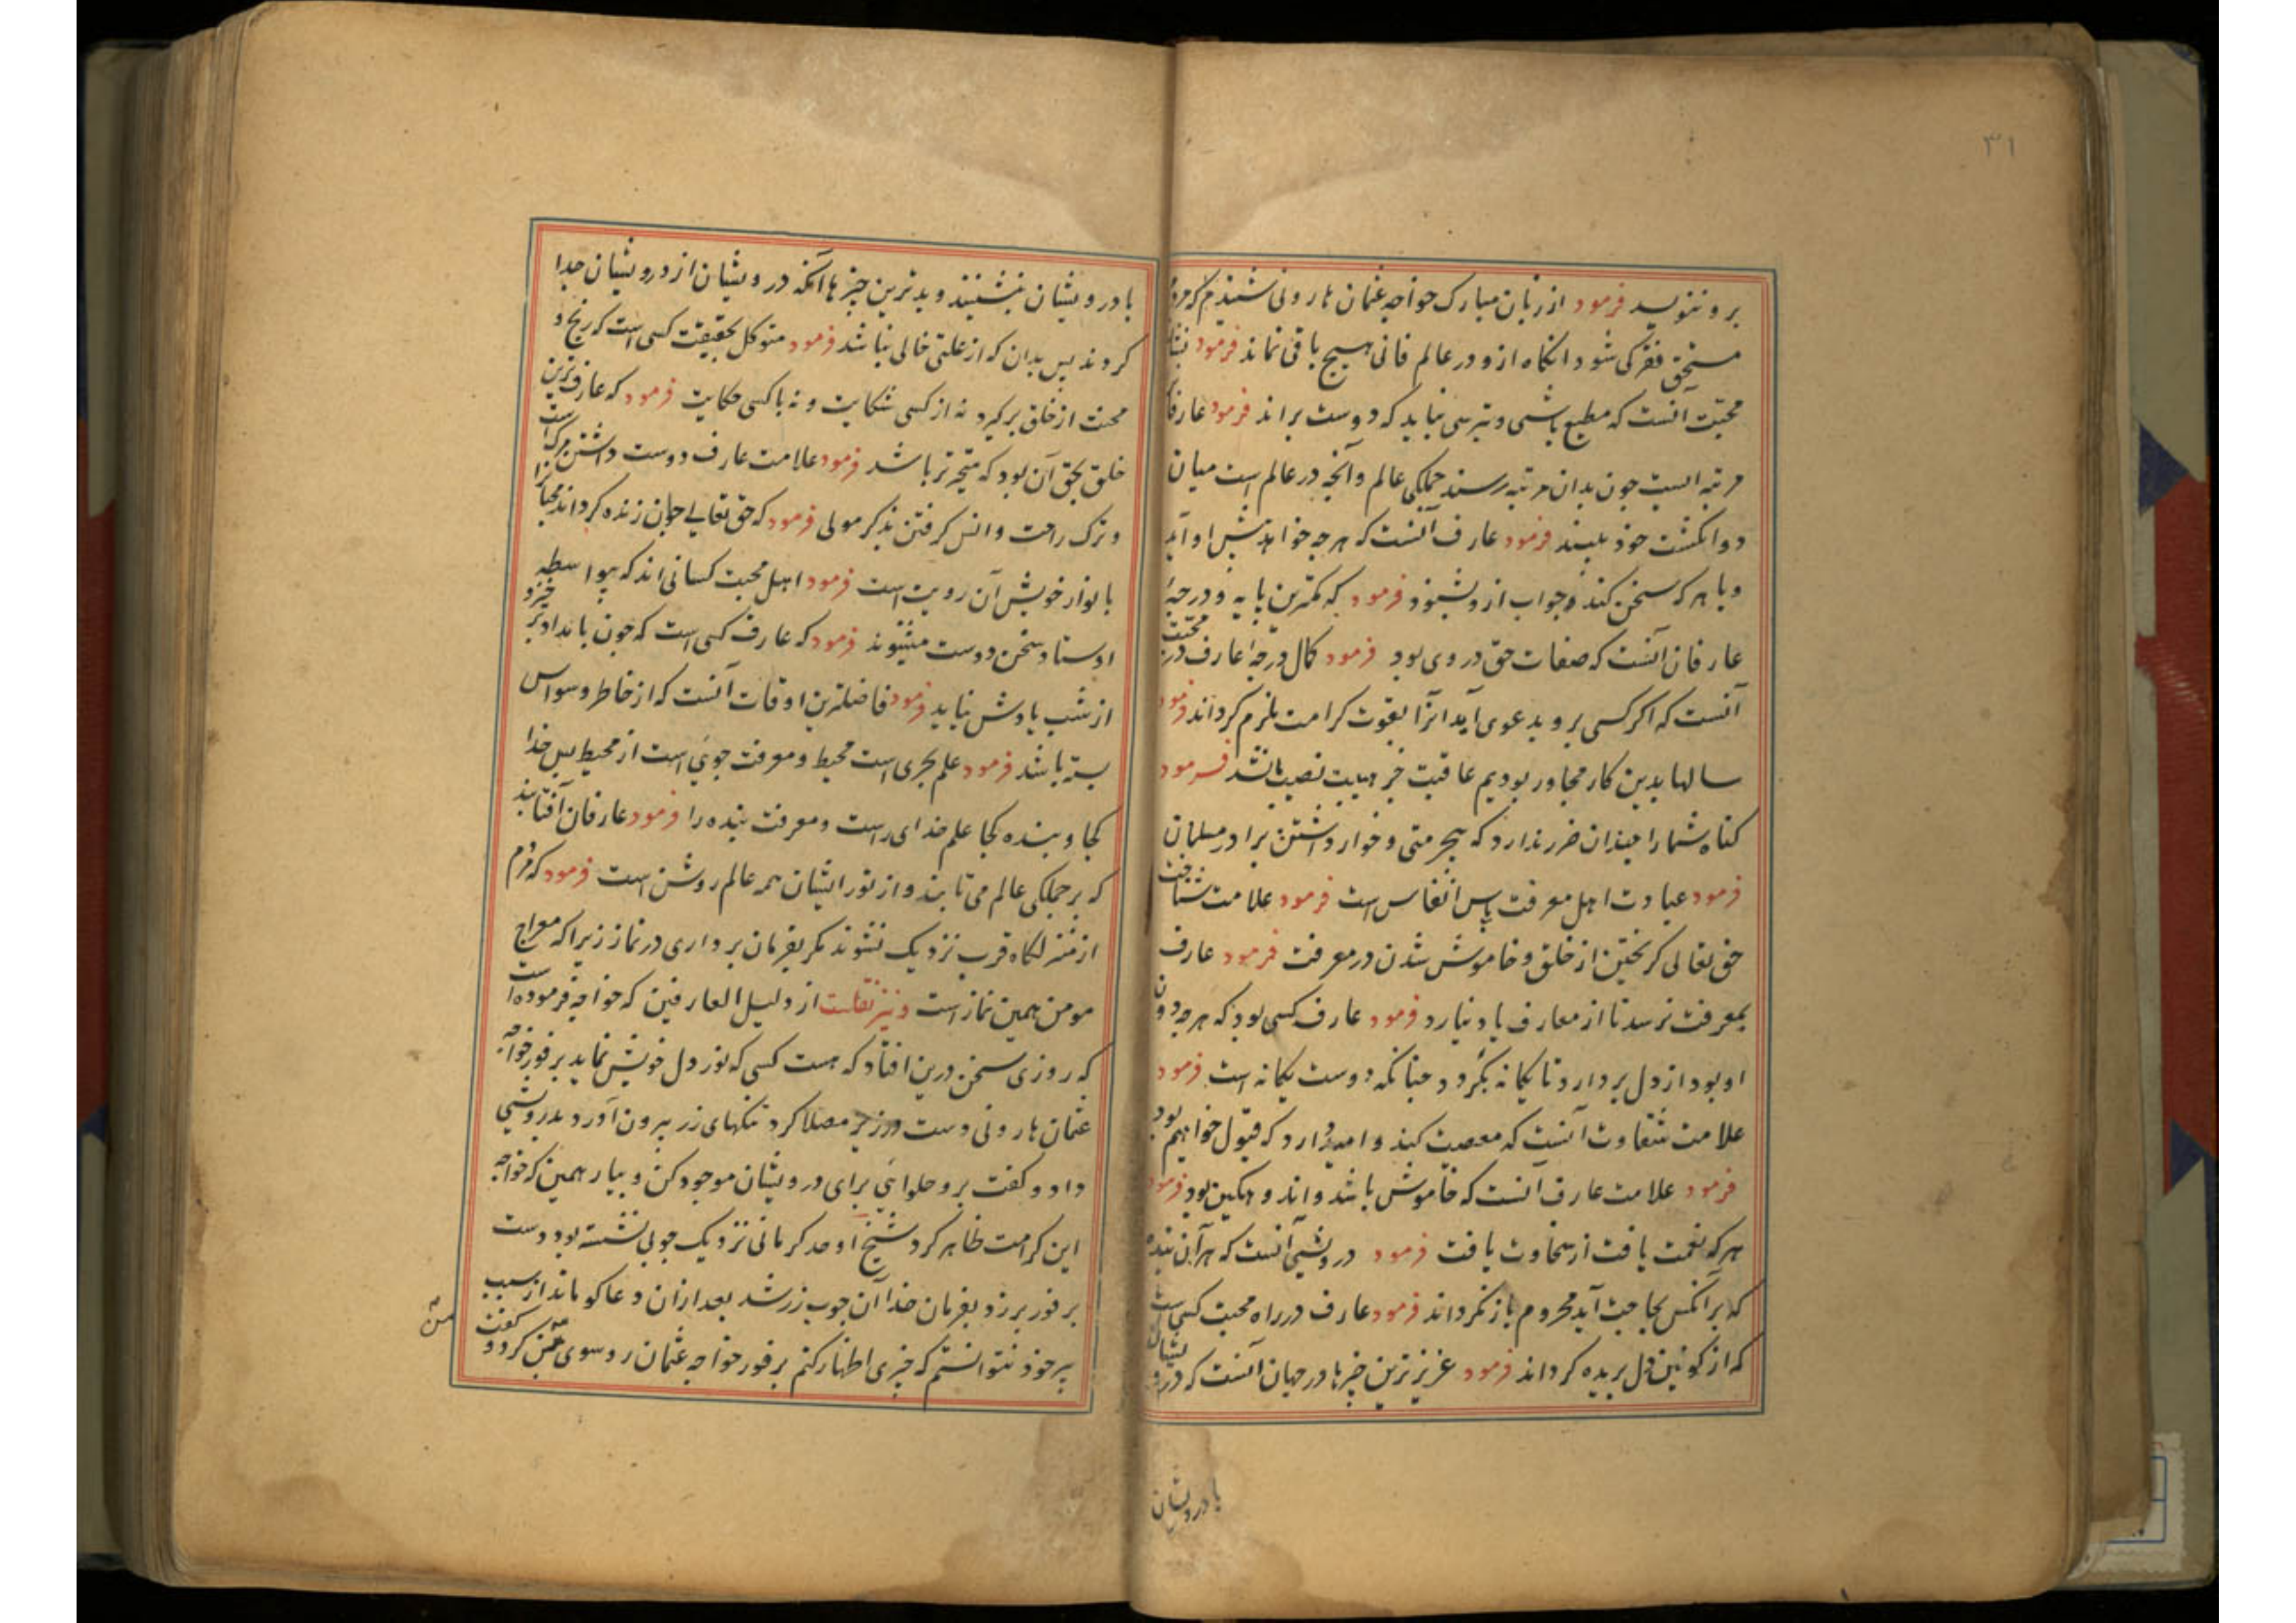 ۳۱
برو ننویسد فرمود از زبان مبارک خواجه عثمان هارونی شنیدم که مردم
مستحق فقر کی شود آنگاه ازو در عالم فانی هیچ باقی نماند فرمود نشان
محبت آنست که مطیع باشی و بترسی نباید که دوست براند فرمود عارفان
مرتبه ایست چون بدان مرتبه رسند جملگی عالم و آنچه در عالم است میان
دو انگشت خود ببینند فرمود عارف آنست که هر چه خواهد پیش او آید
و با هر که سخن کند و جواب ازو بشنود فرمود که کمترین پایه و درجهٔ
عارفان آنست که صفات حق در وی بود فرمود کمال درجهٔ عارف در محبت
آنست که اگر کسی برو بدعوی آید آنرا بقوت کرامت ملزم گرداند فرمود
سالها بدین کار مجاور بودیم عاقبت جز هیبت نصیب ما نشد فرمود
گناه شما را چندان ضرر ندارد که بیحرمتی و خوار داشتن برادر مسلمان
فرمود عبادت اهل معرفت پاس انفاس است فرمود علامت شناخت
حق تعالی گریختن از خلق و خاموش شدن در معرفت فرمود عارف
بمعرفت نرسد تا از معارف یاد نیارد فرمود عارف کسی بود که هر چه دون
او بود از دل بردارد تا یگانه بگردد چنانکه دوست یگانه است فرمود
علامت شقاوت آنست که معصیت کند و امید دارد که قبول خواهم بود
فرمود علامت عارف آنست که خاموش باشد و اندوهگین بود فرمود
هر که نعمت یافت از سخاوت یافت فرمود درویشی آنست که هر آینده
که بر آنکس بحاجت آید محروم باز نگرداند فرمود عارف در راه محبت کسی است
که از کونین دل بریده گرداند فرمود عزیزترین چیزها در جهان آنست که درویشان
با درویشان
با درویشان بنشینند و بدترین چیزها آنکه درویشان از درویشان جدا
گردند پس بدان که از علتی خالی نباشد فرمود متوکل بحقیقت کسی است که رنج و
محنت از خلق برگیرد نه از کسی شکایت و نه با کسی حکایت فرمود که عارف ترین
خلق بحق آن بود که متحیرتر باشد فرمود علامت عارف دوست داشتن مرگ است
و ترک راحت و انس گرفتن بذکر مولی فرمود که حق تعالی چون زنده گرداند محبانرا
بانوار خویش آن رویت است فرمود اهل محبت کسانی اند که بیواسطه
اوستاد سخن دوست میشنوند فرمود که عارف کسی است که چون بامداد برخیزد
از شب یادش نیاید فرمود فاضلترین اوقات آنست که از خاطر وسواس
بسته باشد فرمود علم بحری است محیط و معرفت جویی است از محیط پس خدا
کجا و بنده کجا علم خدای راست و معرفت بنده را فرمود عارفان آفتابند
که بر جملگی عالم می تابند و از نور ایشان همه عالم روشن است فرمود که مردم
از منزلگاه قرب نزدیک نشوند مگر بفرمان برداری در نماز زیرا که معراج
مومن همین نماز است و نیز نقلست از دلیل العارفین که خواجه فرموده است
که روزی سخن درین افتاد که هست کسی که نور دل خویش نماید بر فور خواجه
عثمان هارونی دست در زیر مصلا کرد تنگهای زر بیرون آورد بدرویشی
داد و گفت برو حلوائی برای درویشان موجود کن و بیار همین که خواجه
این کرامت ظاهر کرد شیخ اوحد کرمانی نزدیک چوبی نشسته بود دست
بر فور برزد بفرمان خدا آن چوب زر شد بعد ازان دعاگو ماند از سبب
پیر خود نتوانستم که چیزی اظهار کنم بر فور خواجه عثمان رو سوی من کرد و گفت